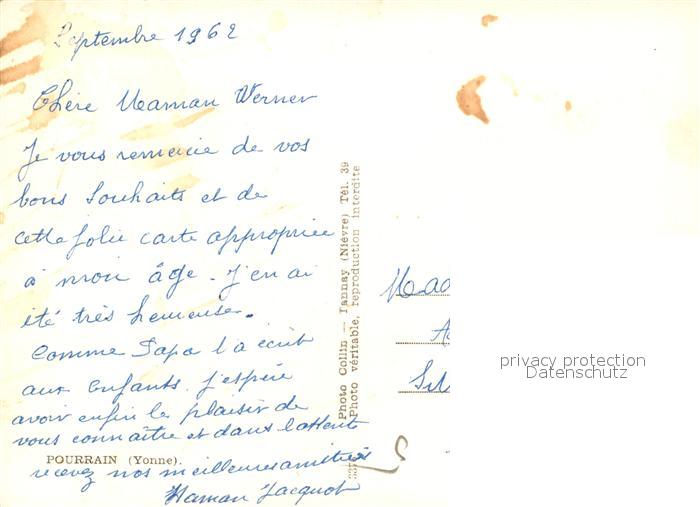 Septembre 1962
Chère Maman Werner
Je vous remercie de vos
bons Souhaits et de
cette jolie carte appropriée
à mon âge. J'en ai
été très heureuse.
Comme Papa l'a écrit
aux Enfants. J'espère
avoir enfin le plaisir de
vous connaître et dans l'attente
POURRAIN (Yonne).
recevez nos meilleures amitiés
Maman Jacquot
Photo Collin — Tannay (Nièvre) Tél. 39
Photo véritable, reproduction interdite
privacy protection
Datenschutz